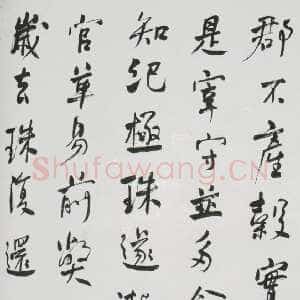 郡不產穀實
是宰守並多
知紀極珠遂
官革易前弊
歲去珠復還
Shufawang.CN